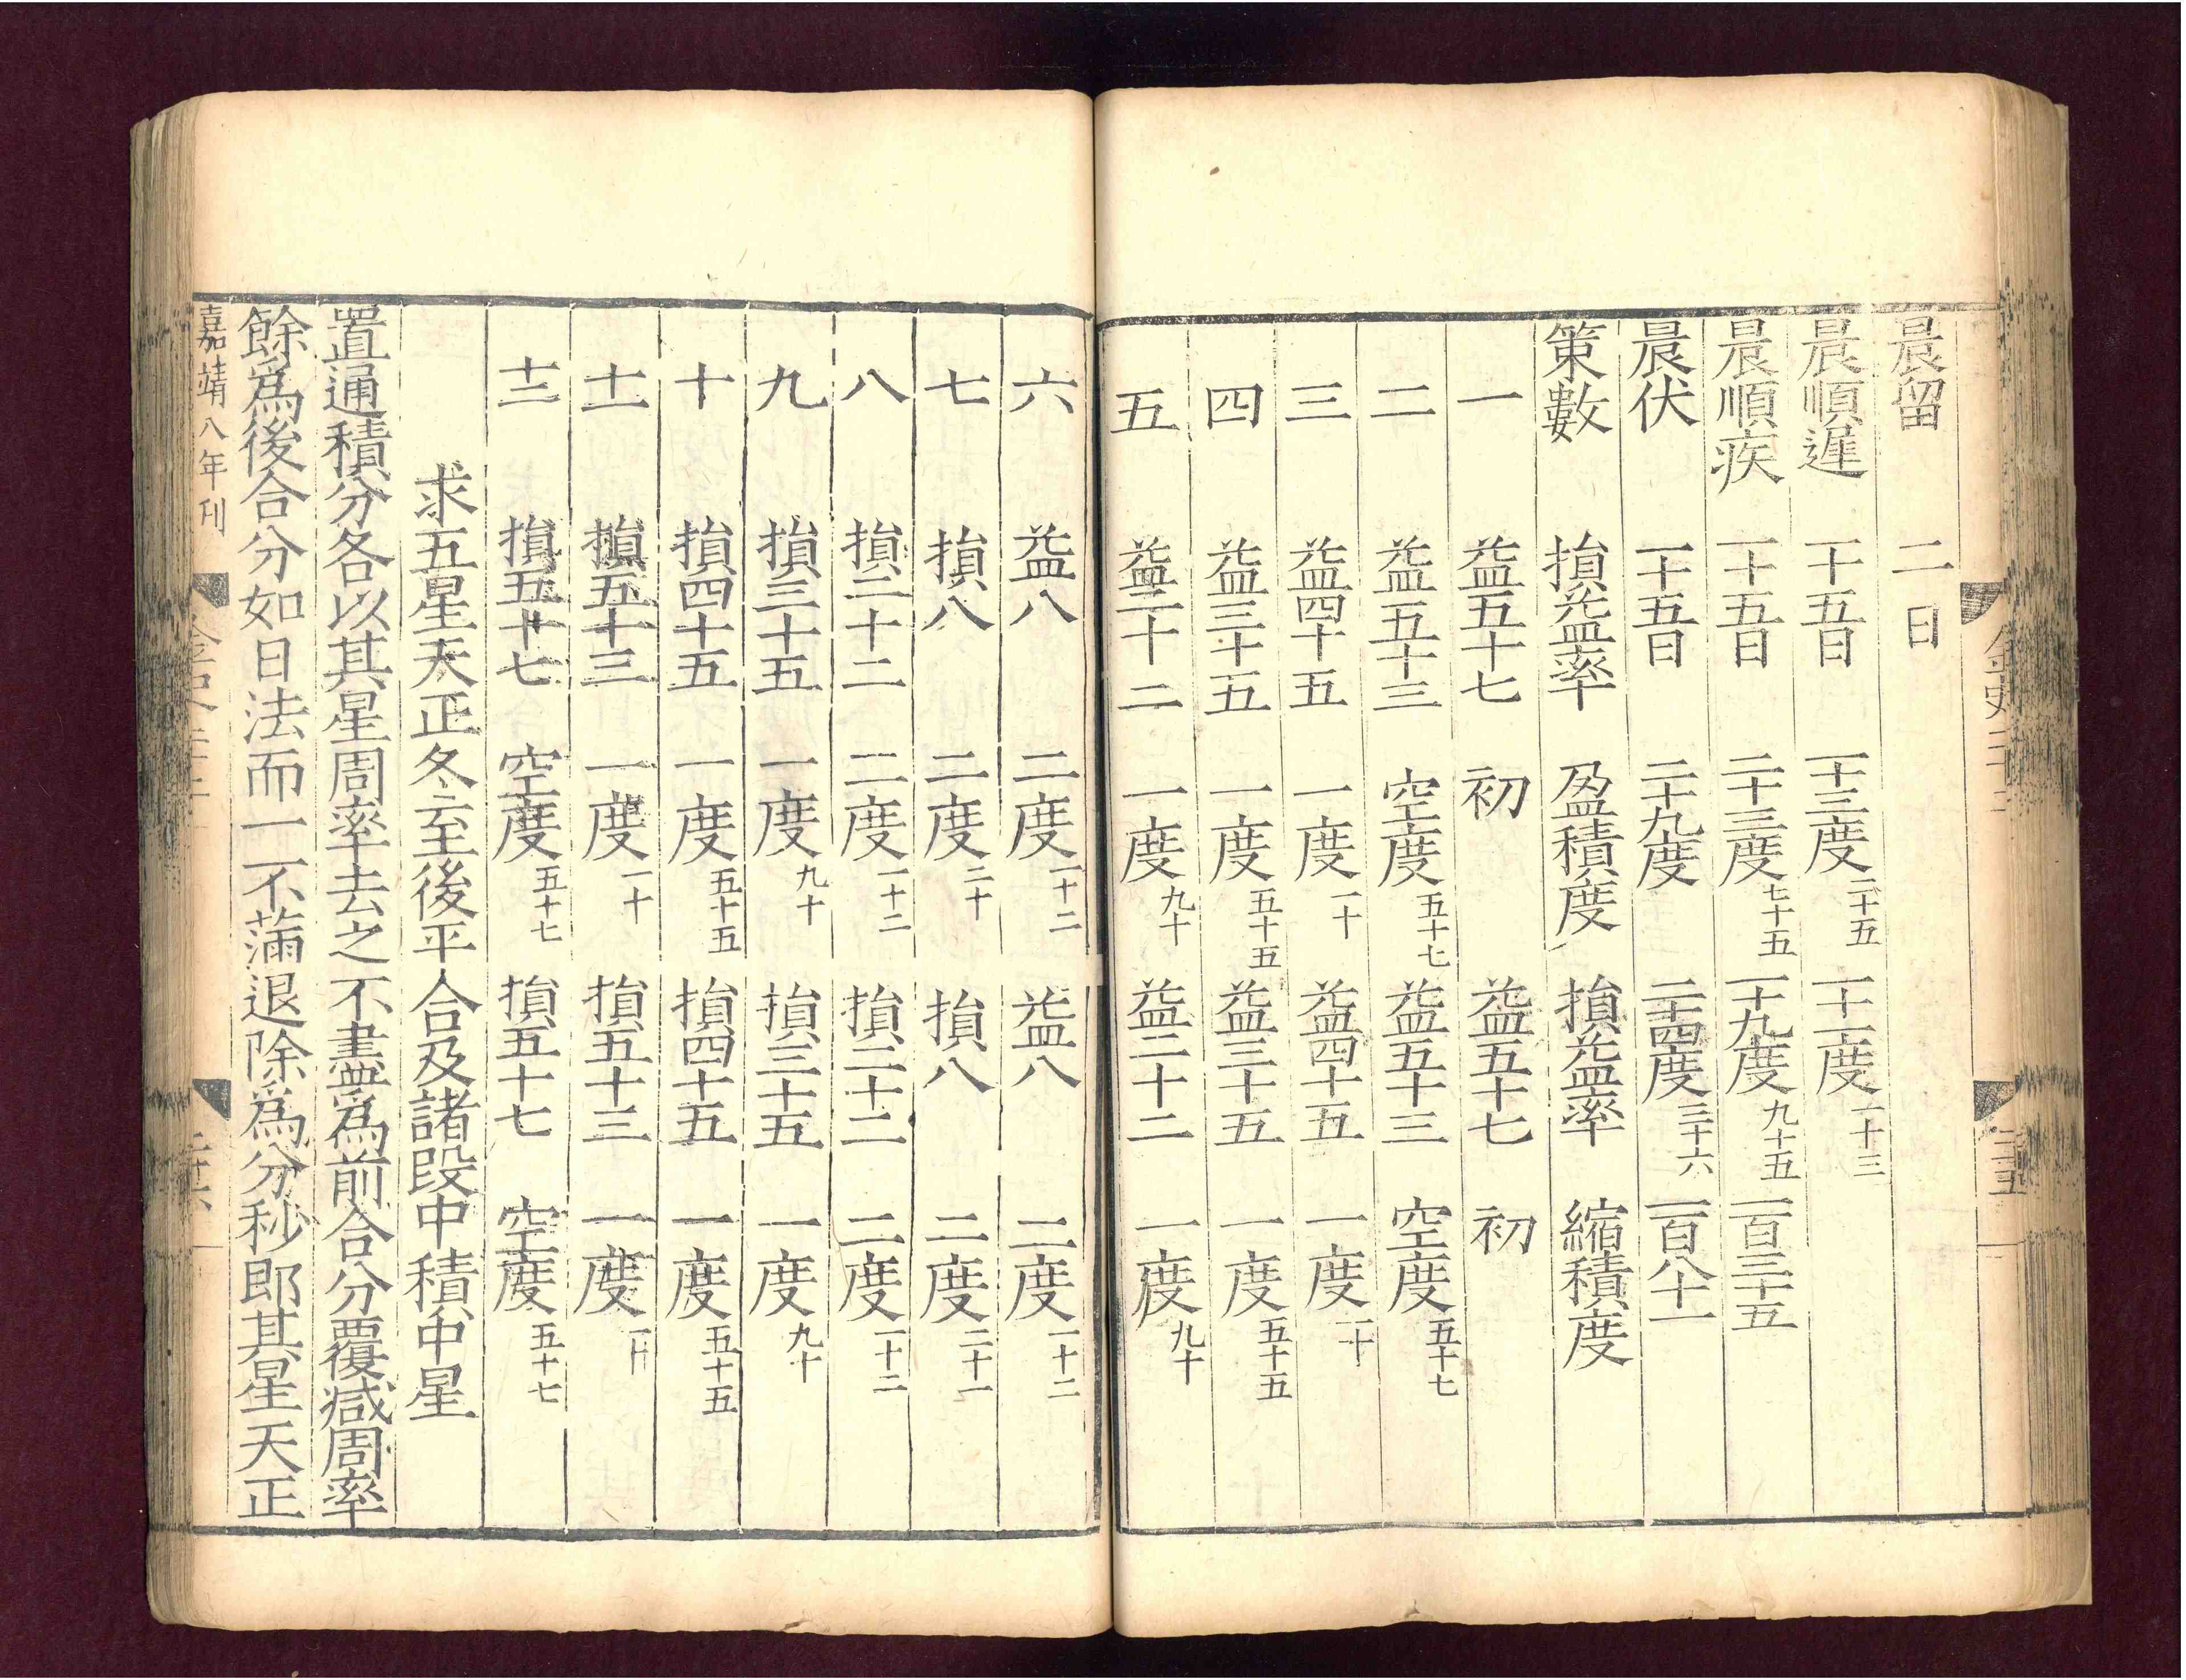 晨留 二日
晨順遲 一十五日 一十三度二十五 一十一度一十三
晨順疾 一十五日 二十三度七十五 一十九度九十五 一百三十五
晨伏 一十五日 二十九度 二十四度三十六 一百八十一
策數 損益率 盈積度 損益率 縮積度
一 益五十七 初 益五十七 初
二 益五十三 空度五十七 益五十三 空度五十七
三 益四十五 一度一十 益四十五 一度一十
四 益三十五 一度五十五 益三十五 一度五十五
五 益二十二 一度九十 益二十二 一度九十
六 益八 二度一十二 益八 二度一十二
七 損八 二度二十 損八 二度二十一
八 損二十二 二度一十二 損二十二 二度一十二
九 損三十五 一度九十 損三十五 一度九十
十 損四十五 一度五十五 損四十五 一度五十五
十一 損五十三 一度一十 損五十三 一度一十
十二 損五十七 空度五十七 損五十七 空度五十七
求五星天正冬至後平合及諸段中積中星
置通積分各以其星周率去之不盡為前合分覆減周率
餘為後合分如日法而一不滿退除為分秒即其星天正
嘉靖八年刊
金史二十二
二十五
金史二十二
二十六